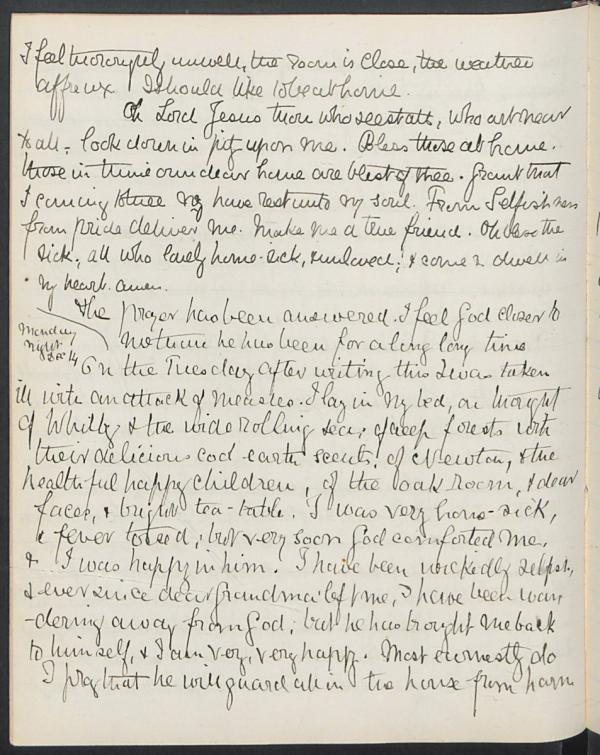 I feel thoroughly unwell, the room is close, the weather
affreux I should like to be at home.
Oh Lord Jesus thou who seest all, who art near
to all - look down in pity upon me. Bless those at home.
those in thine own dear home are blest of thee. Grant that
I coming to thee my have rest unto my soul. From Selfishness
from pride deliver me. Make me a true friend. Oh bless the
sick, all who lonely home-sick, & unloved; & come & dwell in
my heart. amen.
The prayer has been answered. I feel God closer to
Monday
night
Dec 14
me than he has been for a long long time
On the Tuesday after writing this I was taken
ill with an attack of measles. I lay in my bed, and thought
of Whitby & the wide rolling sea, of deep forests with
their delicious cool earth scents, of Newton, & the
healthful happy children, of the oak room, & dear
faces, & bright tea-table. I was very home-sick,
& fever tossed, but very soon God comforted me,
& I was happy in him. I have been wickedly selfish,
& ever since dear Grandma left me, I have been wan
-dering away from God, but he has brought me back
to himself, & I am very, very happy. Most earnestly do
I pray that he will guard all in the house from harm